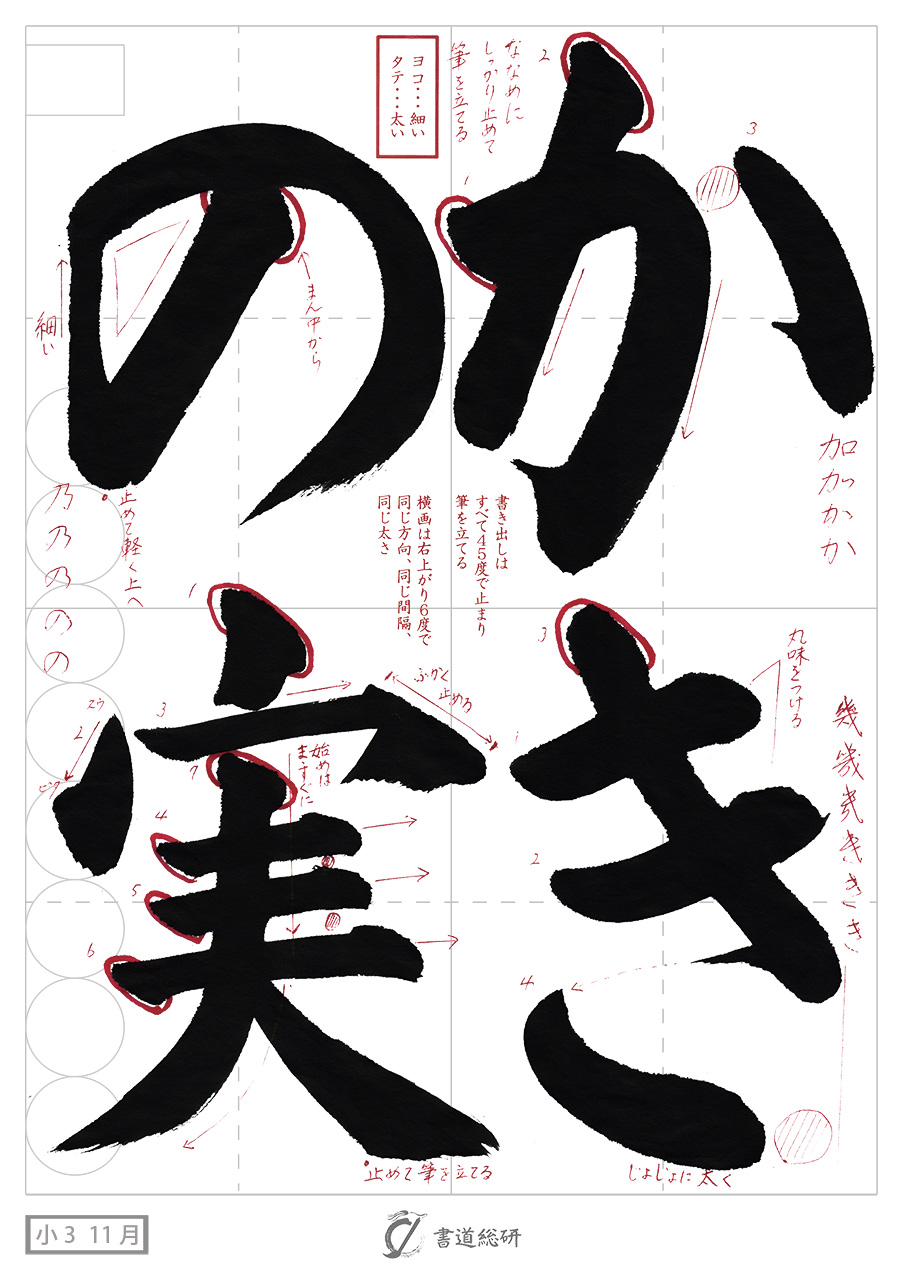 かき
の実
ななめに
しっかり止めて
筆を立てる
ヨコ・・・細い
タテ・・・太い
1
2
3
まん中から
細い
加
か
か
か
止めて軽く上へ
乃
乃
乃
の
の
書き出しは
すべて45度で止まり
筆を立てる
横画は右上がり6度で
同じ方向、同じ間隔、
同じ太さ
丸味をつける
幾
幾
き
き
き
1
2
3
4
じょじょに太く
ふかく
止める
始めは
ますぐに
1
2
3
4
5
6
7
止めて筆を立てる
小3 11月
書道総研